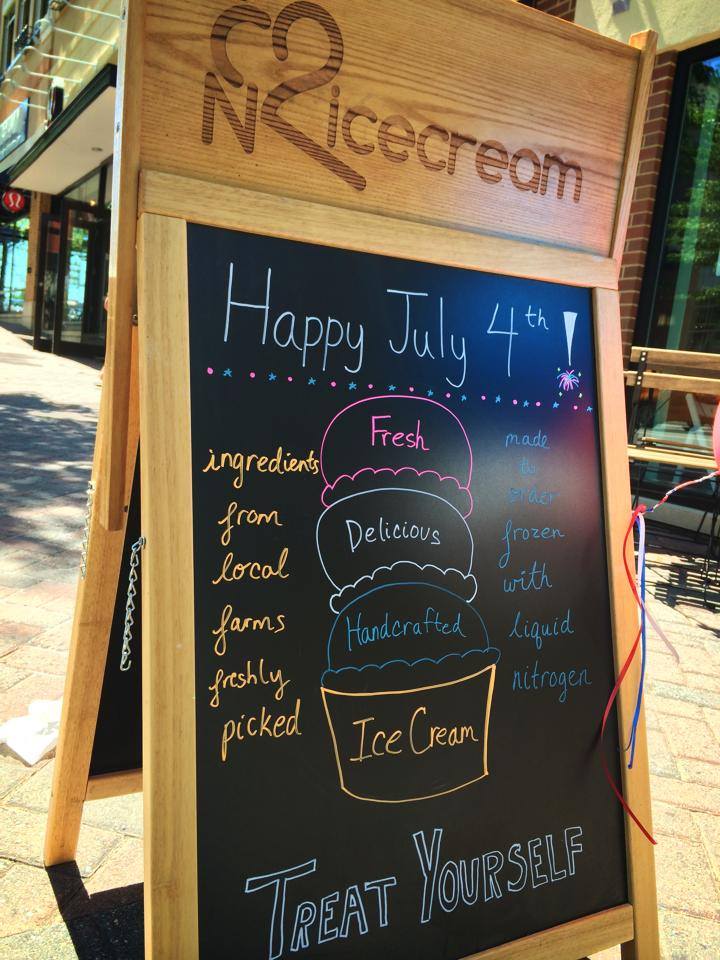 N2icecream
Happy July 4th!
ingredients
from
local
farms
freshly
picked
Fresh
Delicious
Handcrafted
Ice Cream
made
to
order
frozen
with
liquid
nitrogen
TREAT YOURSELF